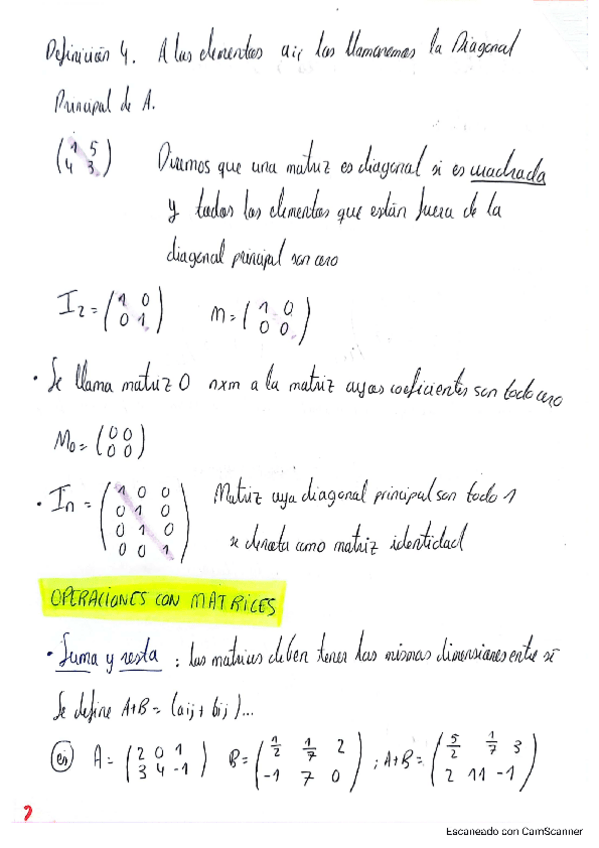 Definición 4. A los elementos aii los llamaremos la Diagonal
Principal de A.
(1 5
4 3) Diremos que una matriz es diagonal si es cuadrada
y todos los elementos que están fuera de la
diagonal principal son cero
I2 = (1 0
0 1) m = (1 0
0 0)
• Se llama matriz 0 nxm a la matriz cuyos coeficientes son todo cero
M0 = (0 0
0 0)
• In = (1 0 0
0 1 0
0 1 0
0 0 1) Matriz cuya diagonal principal son todo 1
se denota como matriz identidad
OPERACIONES CON MATRICES
• Suma y resta : las matrices deben tener las mismas dimensiones entre sí
Se define A+B = (aij + bij)...
(ej) A = (2 0 1
3 4 -1) B = (1/2 1/7 2
-1 7 0) ; A+B = (5/2 1/7 3
2 11 -1)
2
Escaneado con CamScanner